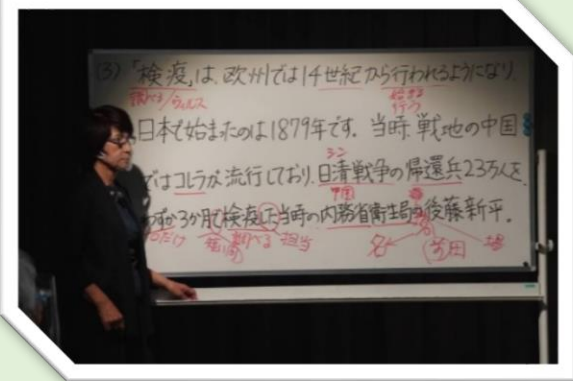 (3)「検疫」は、欧州では14世紀から行われるようになり、
調べる/ウィルス 始まる
行う
日本で始まったのは1879年です。当時、戦地の中国
シン
ではコレラが流行しており、日清戦争の帰還兵23万人を、
中国
わずか3か月で検疫した当時の内務省衛生局の後藤新平。
だけ 調べる 担当 名